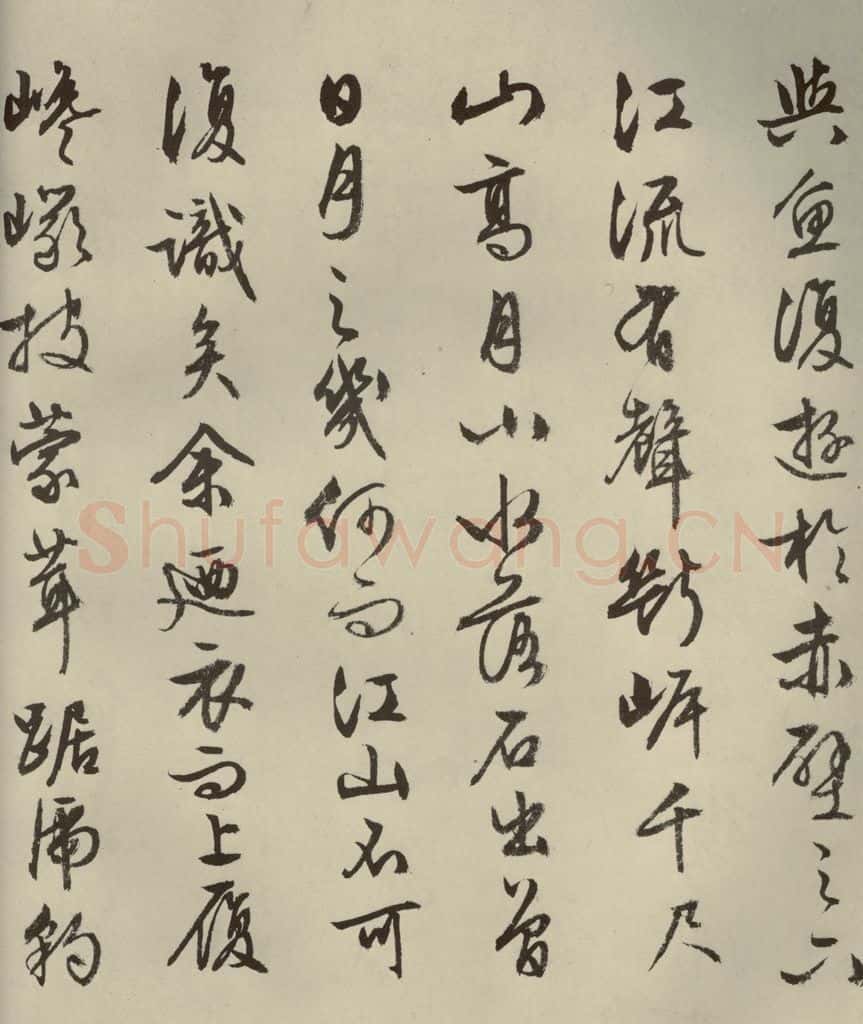 與魚復遊於赤壁之下
江流有聲斷岸千尺
山高月小水落石出曾
日月之幾何而江山不可
復識矣余廼衣而上履
巉巖披蒙茸踞虎豹
Shufawang.CN